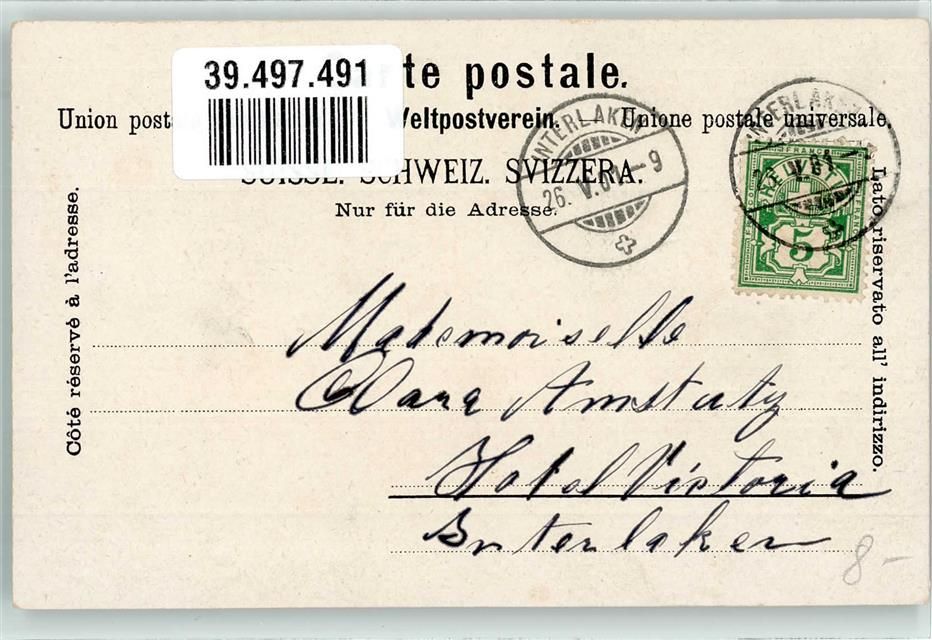 39.497.491
te postale.
Union post Weltpostverein. — Unione postale universale.
SUISSE. SCHWEIZ. SVIZZERA.
Nur für die Adresse.
Côté réservé à l'adresse.
Lato riservato all' indirizzo.
INTERLAKEN
26. V. 01 - 9
INTERLAKEN
FRANCO
HELVETIA
5
Mademoiselle
Clara Amstutz
Hotel Victoria
Interlaken
8-